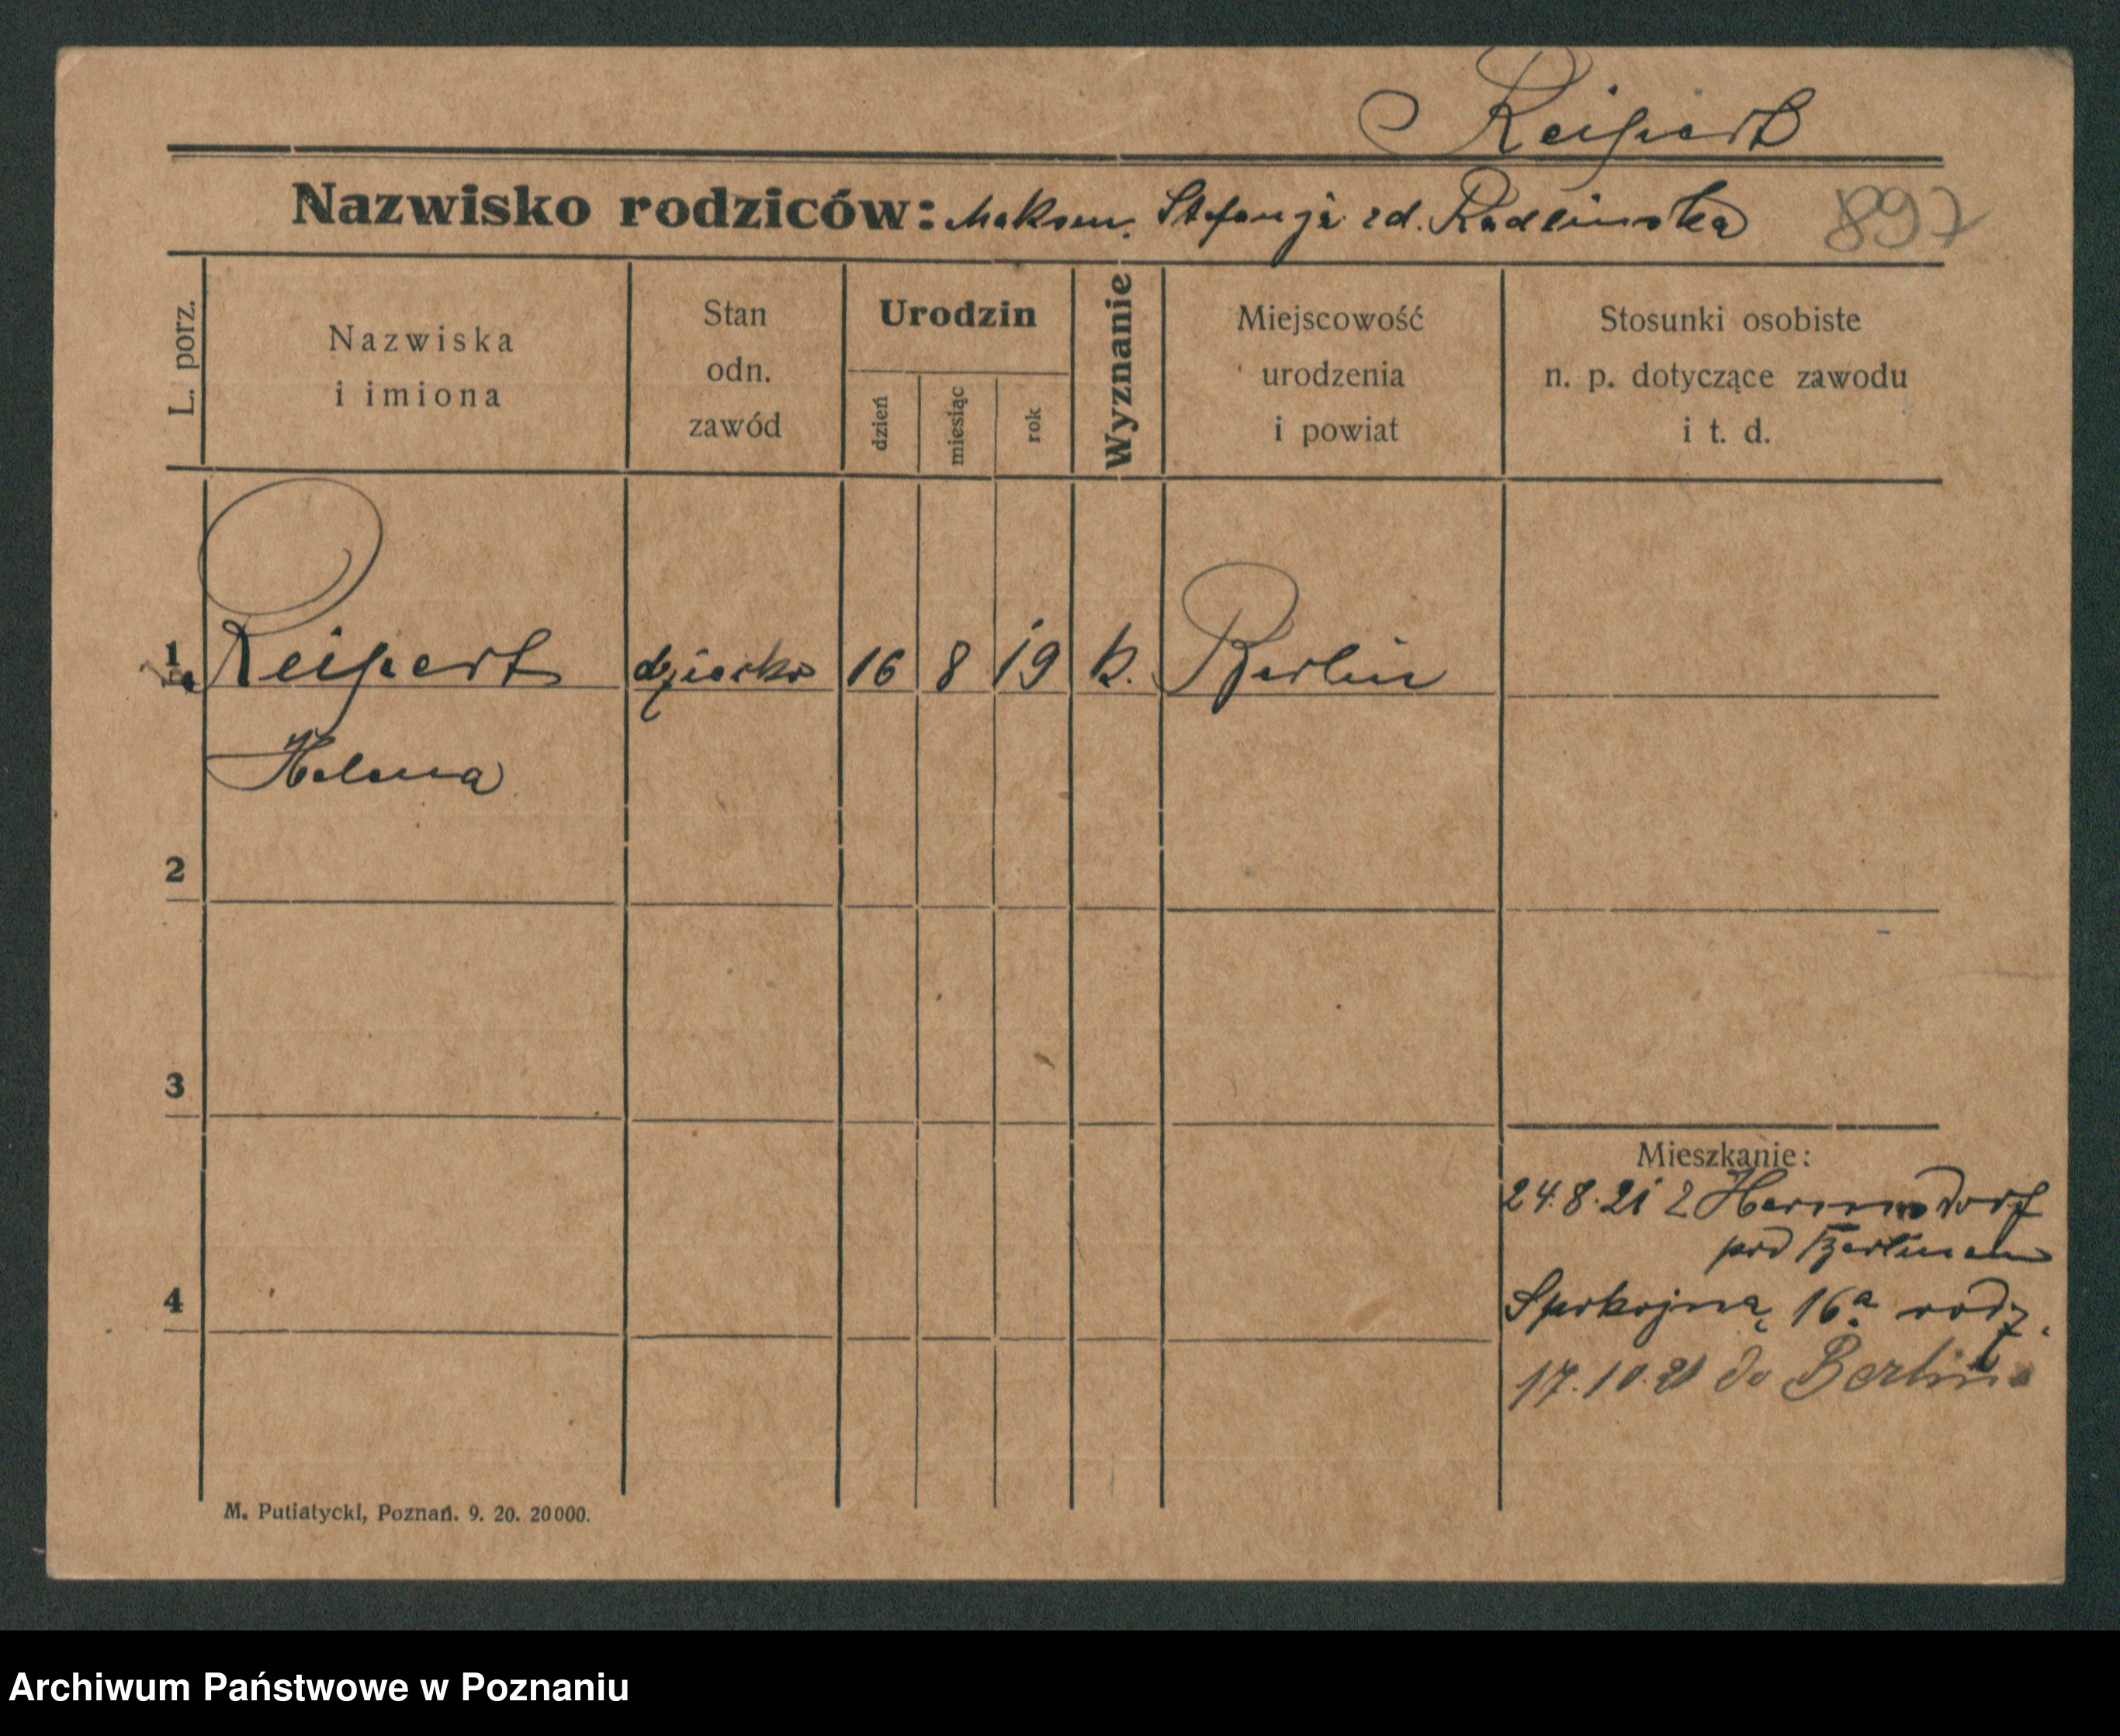 Reipert
Nazwisko rodziców: Maksm. Stefanja zd. Radlinska 897
L. porz.
Nazwiska
i imiona
Stan
odn.
zawód
Urodzin
dzień
miesiąc
rok
Wyznanie
Miejscowość
urodzenia
i powiat
Stosunki osobiste
n. p. dotyczące zawodu
i t. d.
1 Reipert dziecko 16 8 19 k. Berlin
Helena
2
3
Mieszkanie:
24.8.21 z Hermsdorf
pod Berlinem
4 Spokojna 16a rodz.
17.10.21 do Berlina
M. Putiatycki, Poznań. 9. 20. 20000.
Archiwum Państwowe w Poznaniu